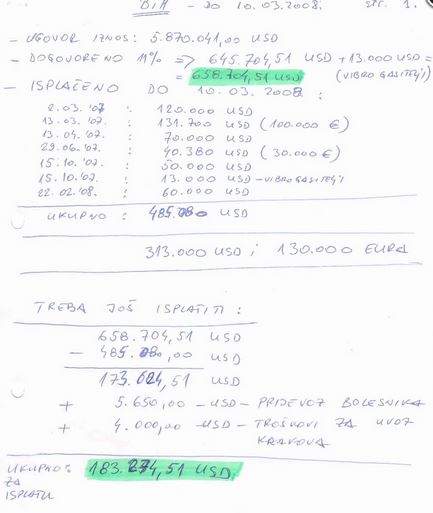 BIH - DO 10.03.2008. str. 1.
- UGOVOR IZNOS: 5.870.041,00 USD
- DOGOVORENO 11% => 645.704,51 USD + 13.000 USD =
= 658.704,51 USD (VIBRO GASITELJI)
- ISPLAĆENO DO 10.03.2008:
2.03.'07 : 120.000 USD
13.03.'07. : 131.700 USD (100.000 €)
13.04.'07. : 70.000 USD
29.06.'07. : 40.380 USD (30.000 €)
15.10.'07. : 50.000 USD
15.10.'07. : 13.000 USD - VIBROGASITELJI
22.02.'08. : 60.000 USD
UKUPNO : 485.080 USD
313.000 USD i 130.000 EURA
TREBA JOŠ ISPLATITI :
658.704,51 USD
- 485.080,00 USD
173.624,51 USD
+ 5.650,00 - USD - PRIJEVOZ BOLESNIKA
+ 4.000,00 - USD - TROŠKOVI ZA UVOZ
KRAKOVA
UKUPNO 183.274,51 USD
ZA
ISPLATU